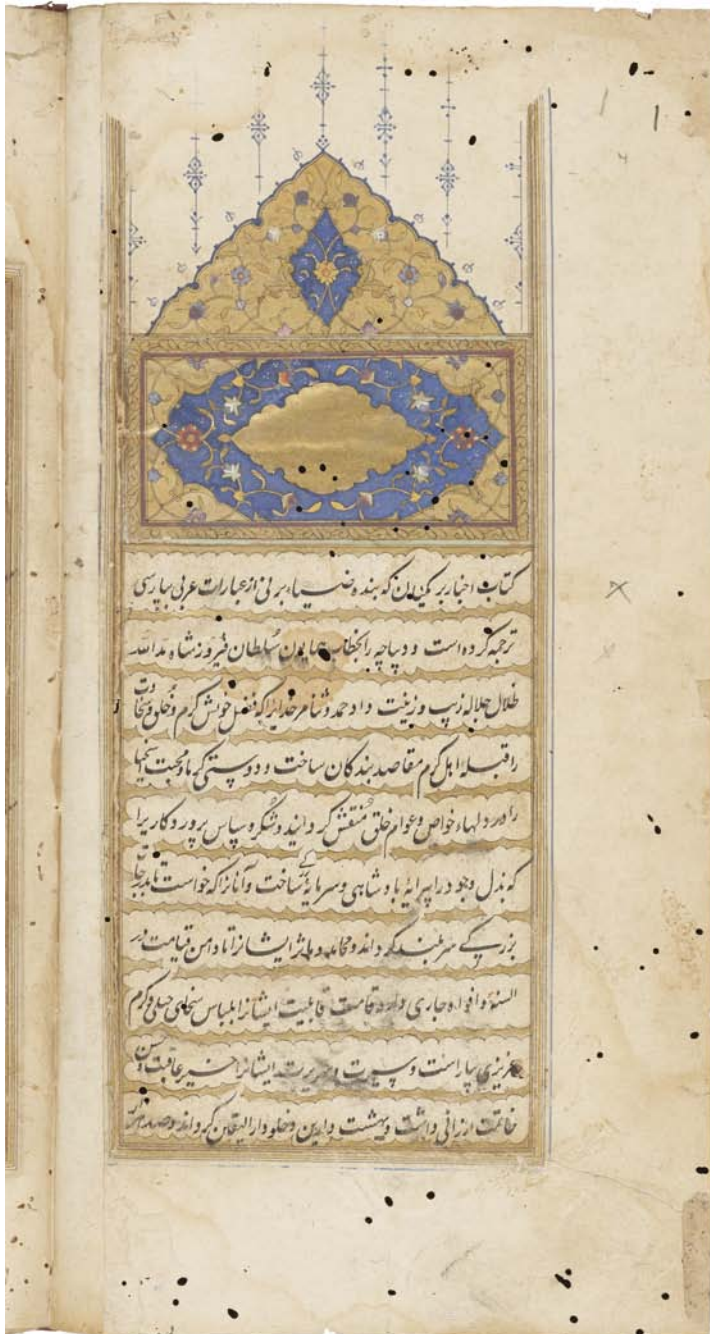 کتاب اخبار برمکیان که بنده ضیاء برنی از عبارات عربی بپارسی
ترجمه کرده است و دیباچه را بخطاب همایون سلطان فیروز شاه مد الله
ظلال جلاله زیب و زینت داد حمد و ثنا مر خدایرا که فضل خویش کرم و خلق و سخاوت
را قبله اهل کرم مقاصد بندکان ساخت و دوستی کرما و محبت اسخیا
را در دلهاء خواص و عوام خلق منقش کردانید و شکر و سپاس پروردکاریرا
که بذل وجود را پیرایۀ بادشاهی و سرمایۀ ساخت و آنانرا که خواست تا بدرجات
بزرکی سربلند کرداند و محامد و مآثر ایشانرا تا دامن قیامت در
السنه و افواه جاری دارد قامت قابلیت ایشانرا بلباس سخای جبلی و کرم
عزیزی بیاراست و سیرت و سریرت ایشانرا خیر عاقبت و حسن
خاتمت ارزانی داشت و بهشت و خلود دار کرداند و صد هزار